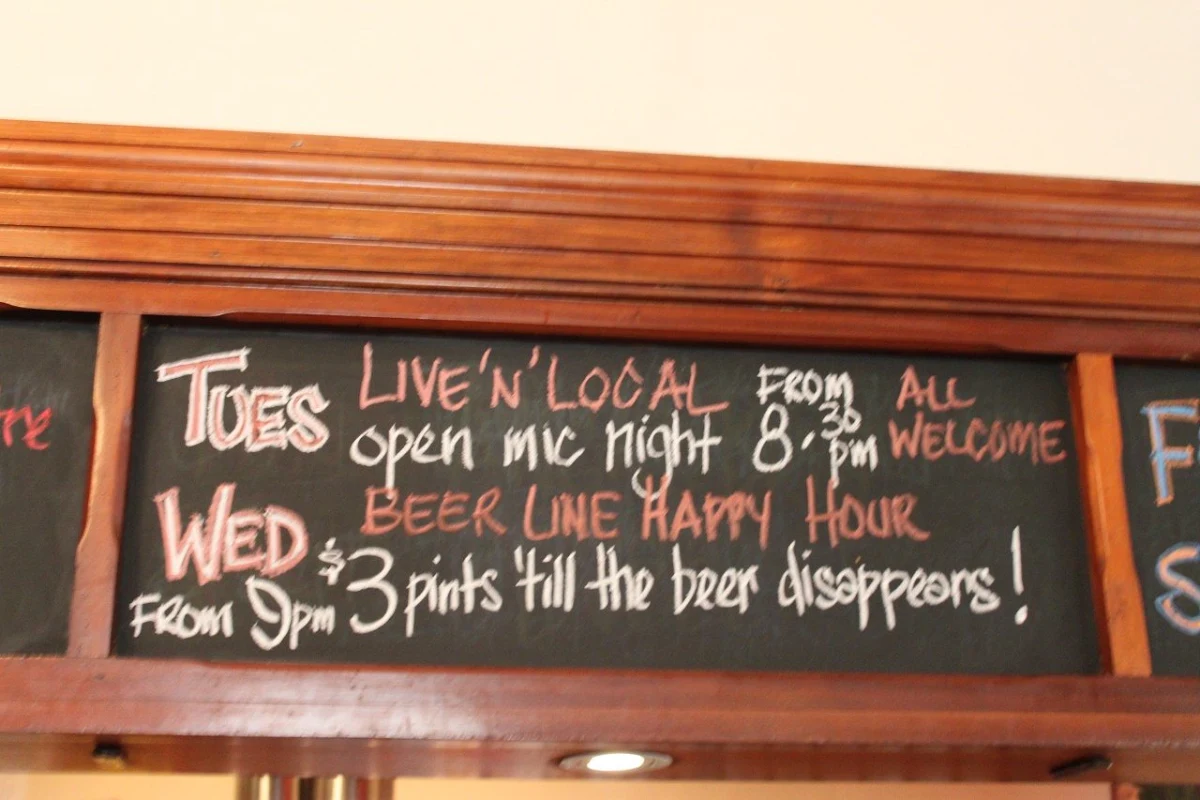 TUES LIVE 'N' LOCAL FROM ALL
open mic night 8.30 pm WELCOME
WED BEER LINE HAPPY HOUR
FROM 9pm $3 pints 'till the beer disappears!